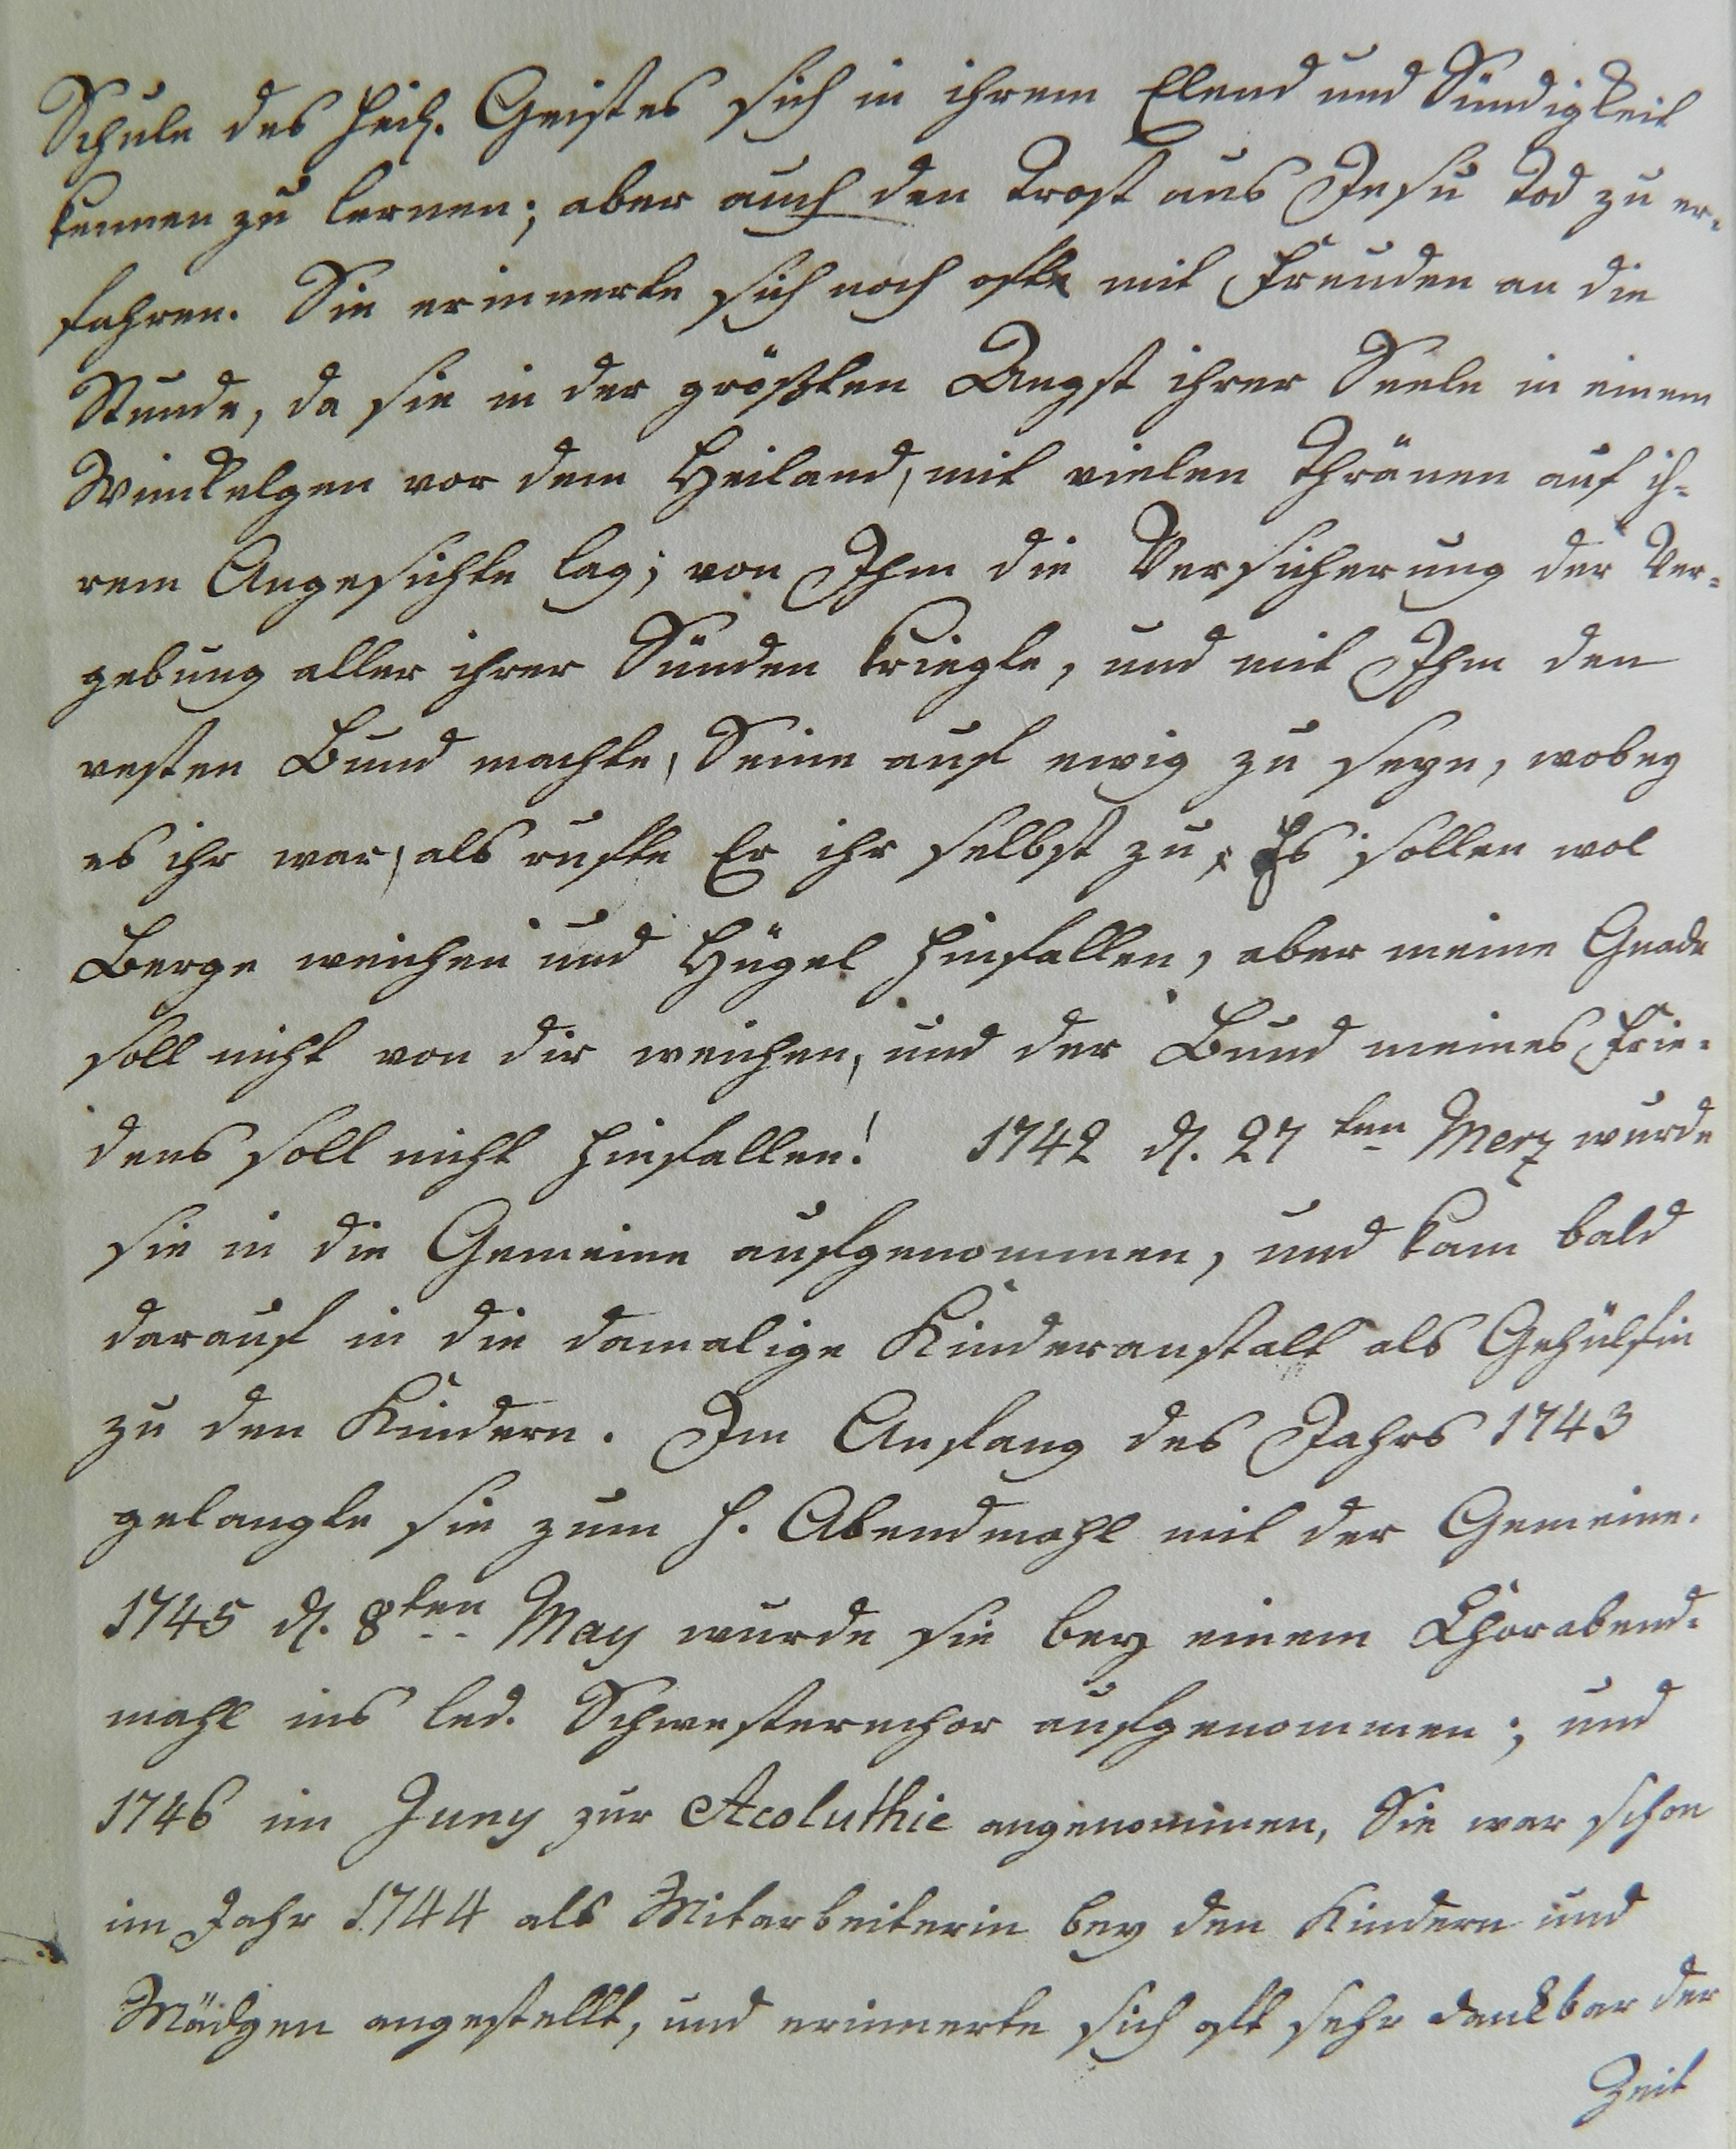 Schule des heil. Geistes sich in ihrem Elend und Sündigkeit
kennen zu lernen; aber auch den Trost aus Jesu Tod zu er-
fahren. Sie erinnerte sich noch ofte mit Freuden an die
Stunde, da sie in der größten Angst ihrer Seele in einem
Winkelgen vor dem Heiland, mit vielen Thränen auf ih-
rem Angesichte lag; von Ihm die Versicherung der Ver-
gebung aller ihrer Sünden kriegte, und mit Ihm den
vesten Bund machte, Seine auf ewig zu seyn, wobey
es ihr war, als rufte Er ihr selbst zu: Es sollen wol
Berge weichen und Hügel hinfallen, aber meine Gnade
soll nicht von dir weichen, und der Bund meines Frie-
dens soll nicht hinfallen! 1742 d. 27ten Merz wurde
sie in die Gemeine aufgenommen, und kam bald
darauf in die damalige Kinderanstalt als Gehülfin
zu den Kindern. Im Anfang des Jahrs 1743
gelangte sie zum h. Abendmahl mit der Gemeine.
1745 d. 8ten May wurde sie bey einem Chorabend-
mahl ins led. Schwesternchor aufgenommen; und
1746 im Juny zur Acoluthie angenommen, Sie war schon
im Jahr 1744 als Mitarbeiterin bey den Kindern und
Mädgen angestellt, und erinnerte sich oft sehr dankbar der
Zeit